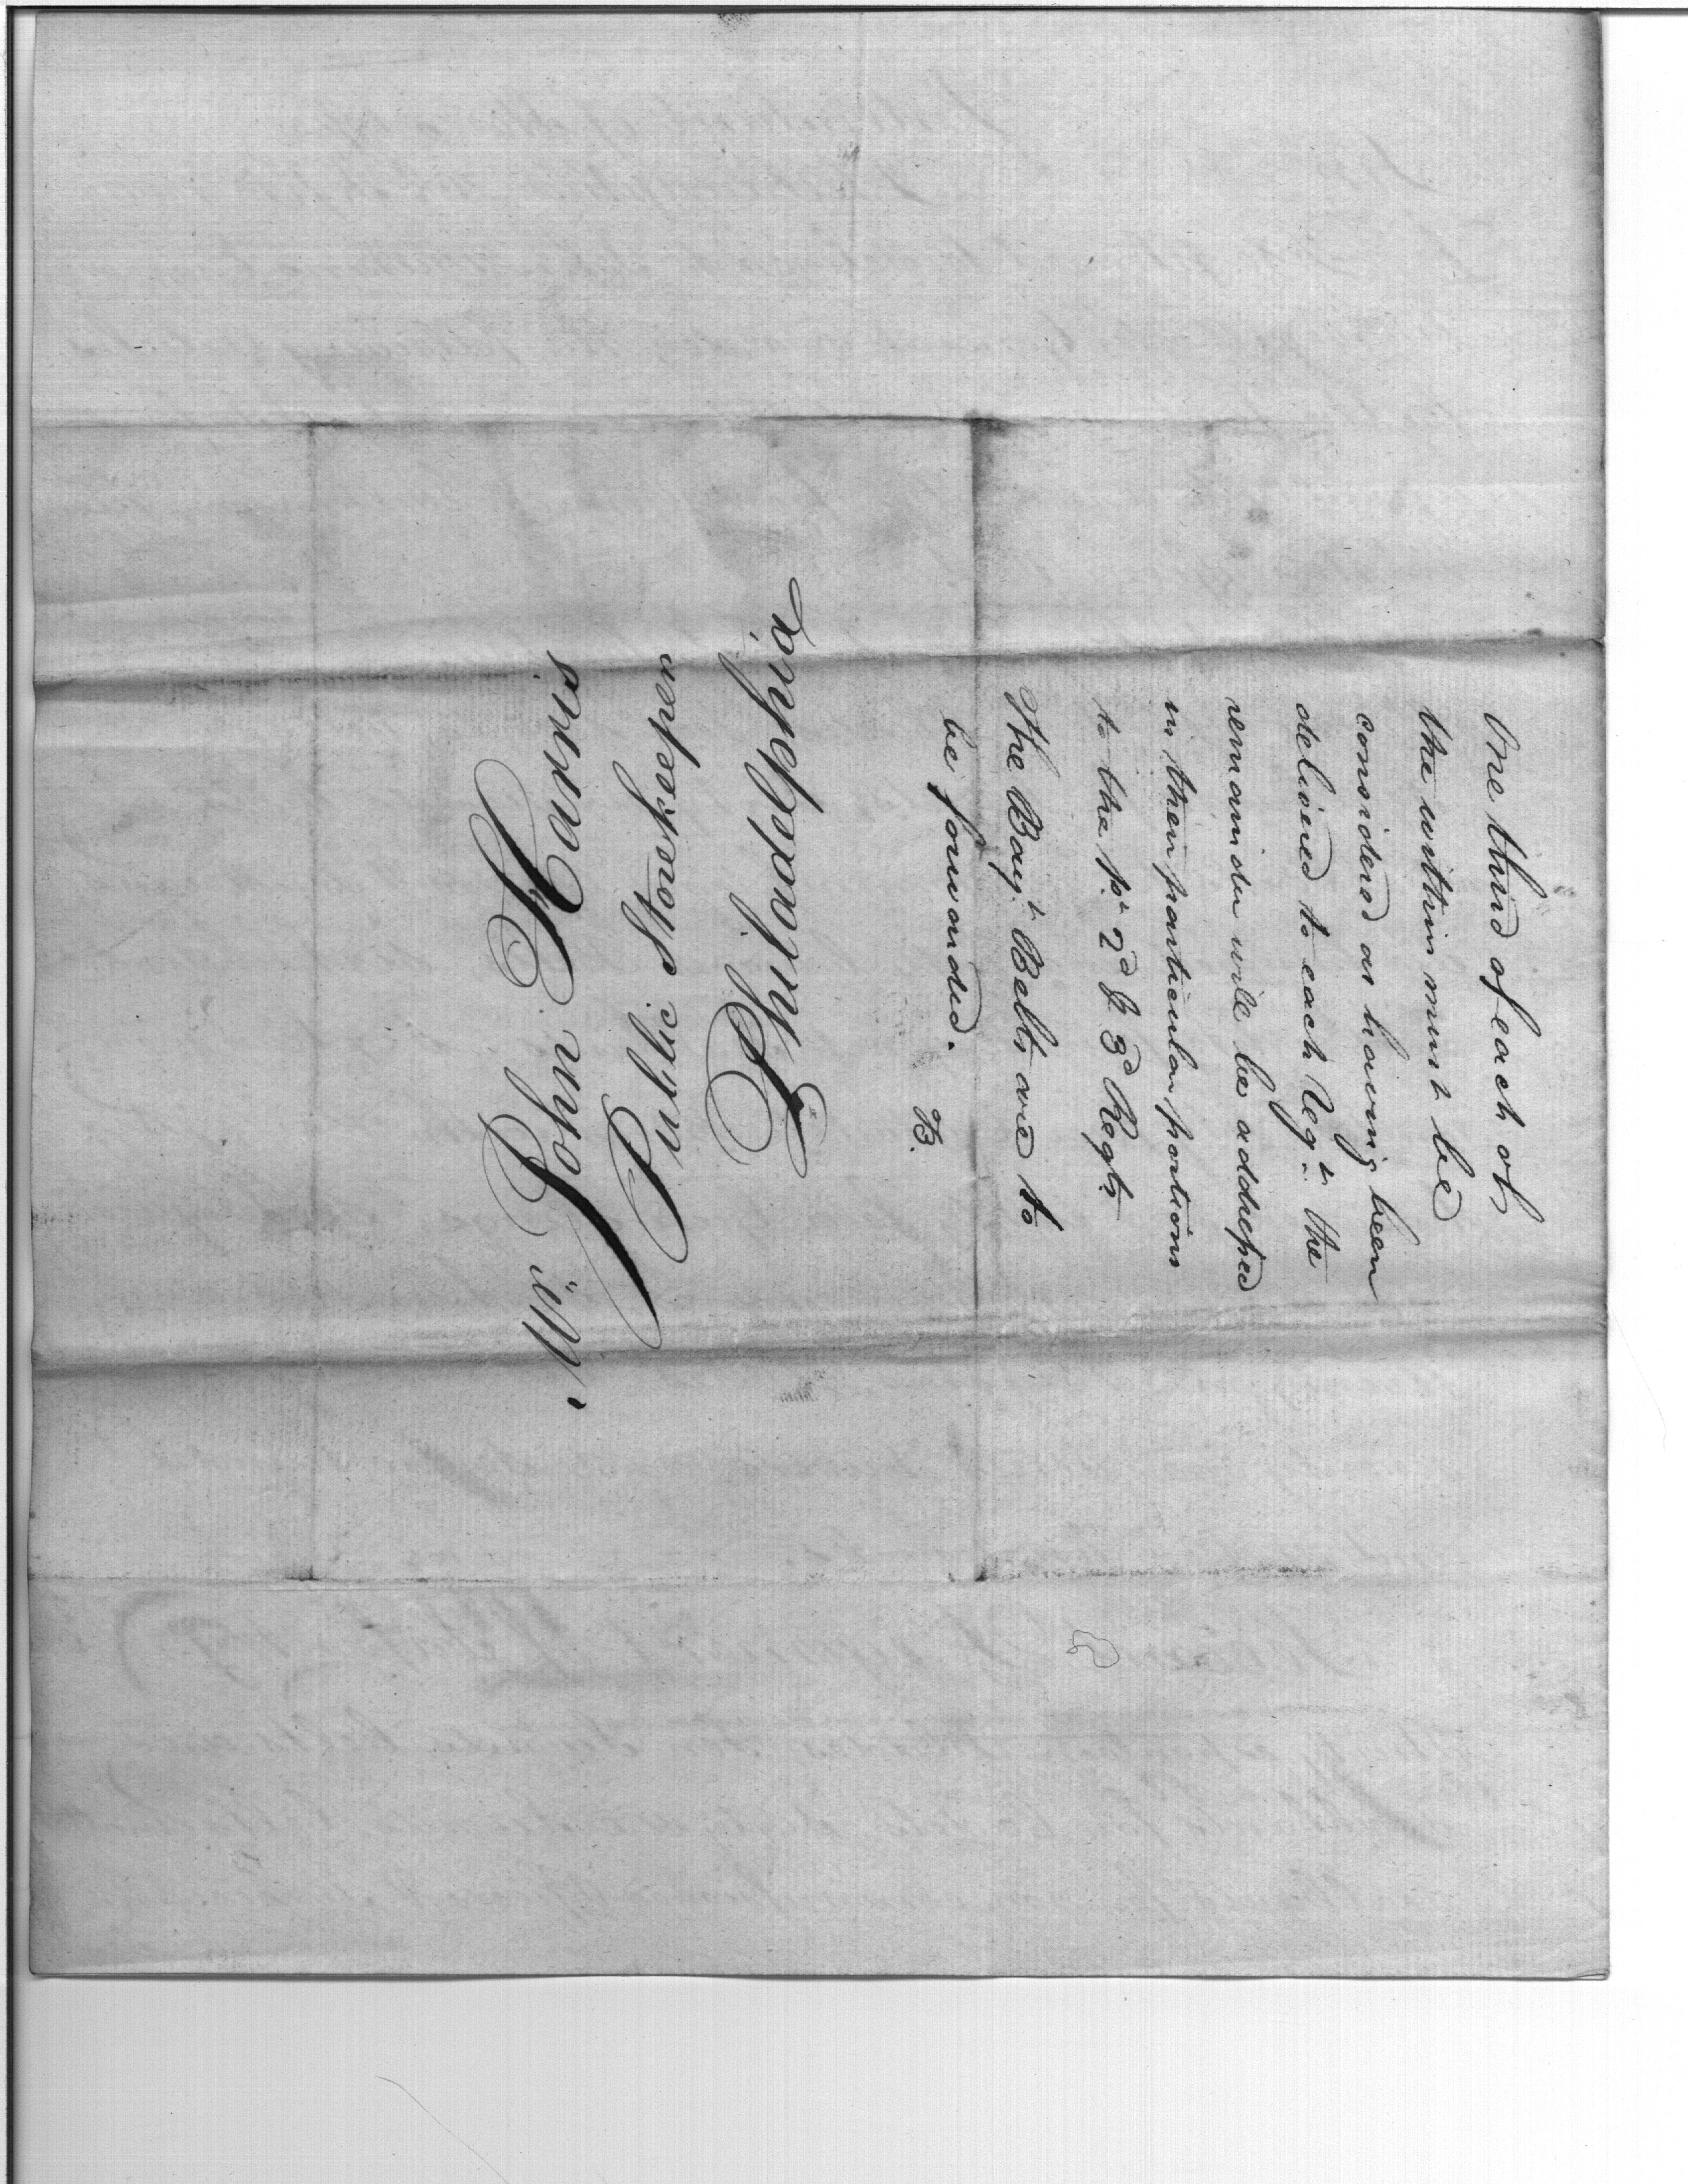 One third of each of
the within must be
considered as having been
delivered to each Regt. the
remainder will be addressed
in their particular portions
to the 1st. 2d & 3d Regts
The Bayt. Belts are to
be forwarded.
B.
Mr. John Harris
Public Storekeeper
Philadelphia